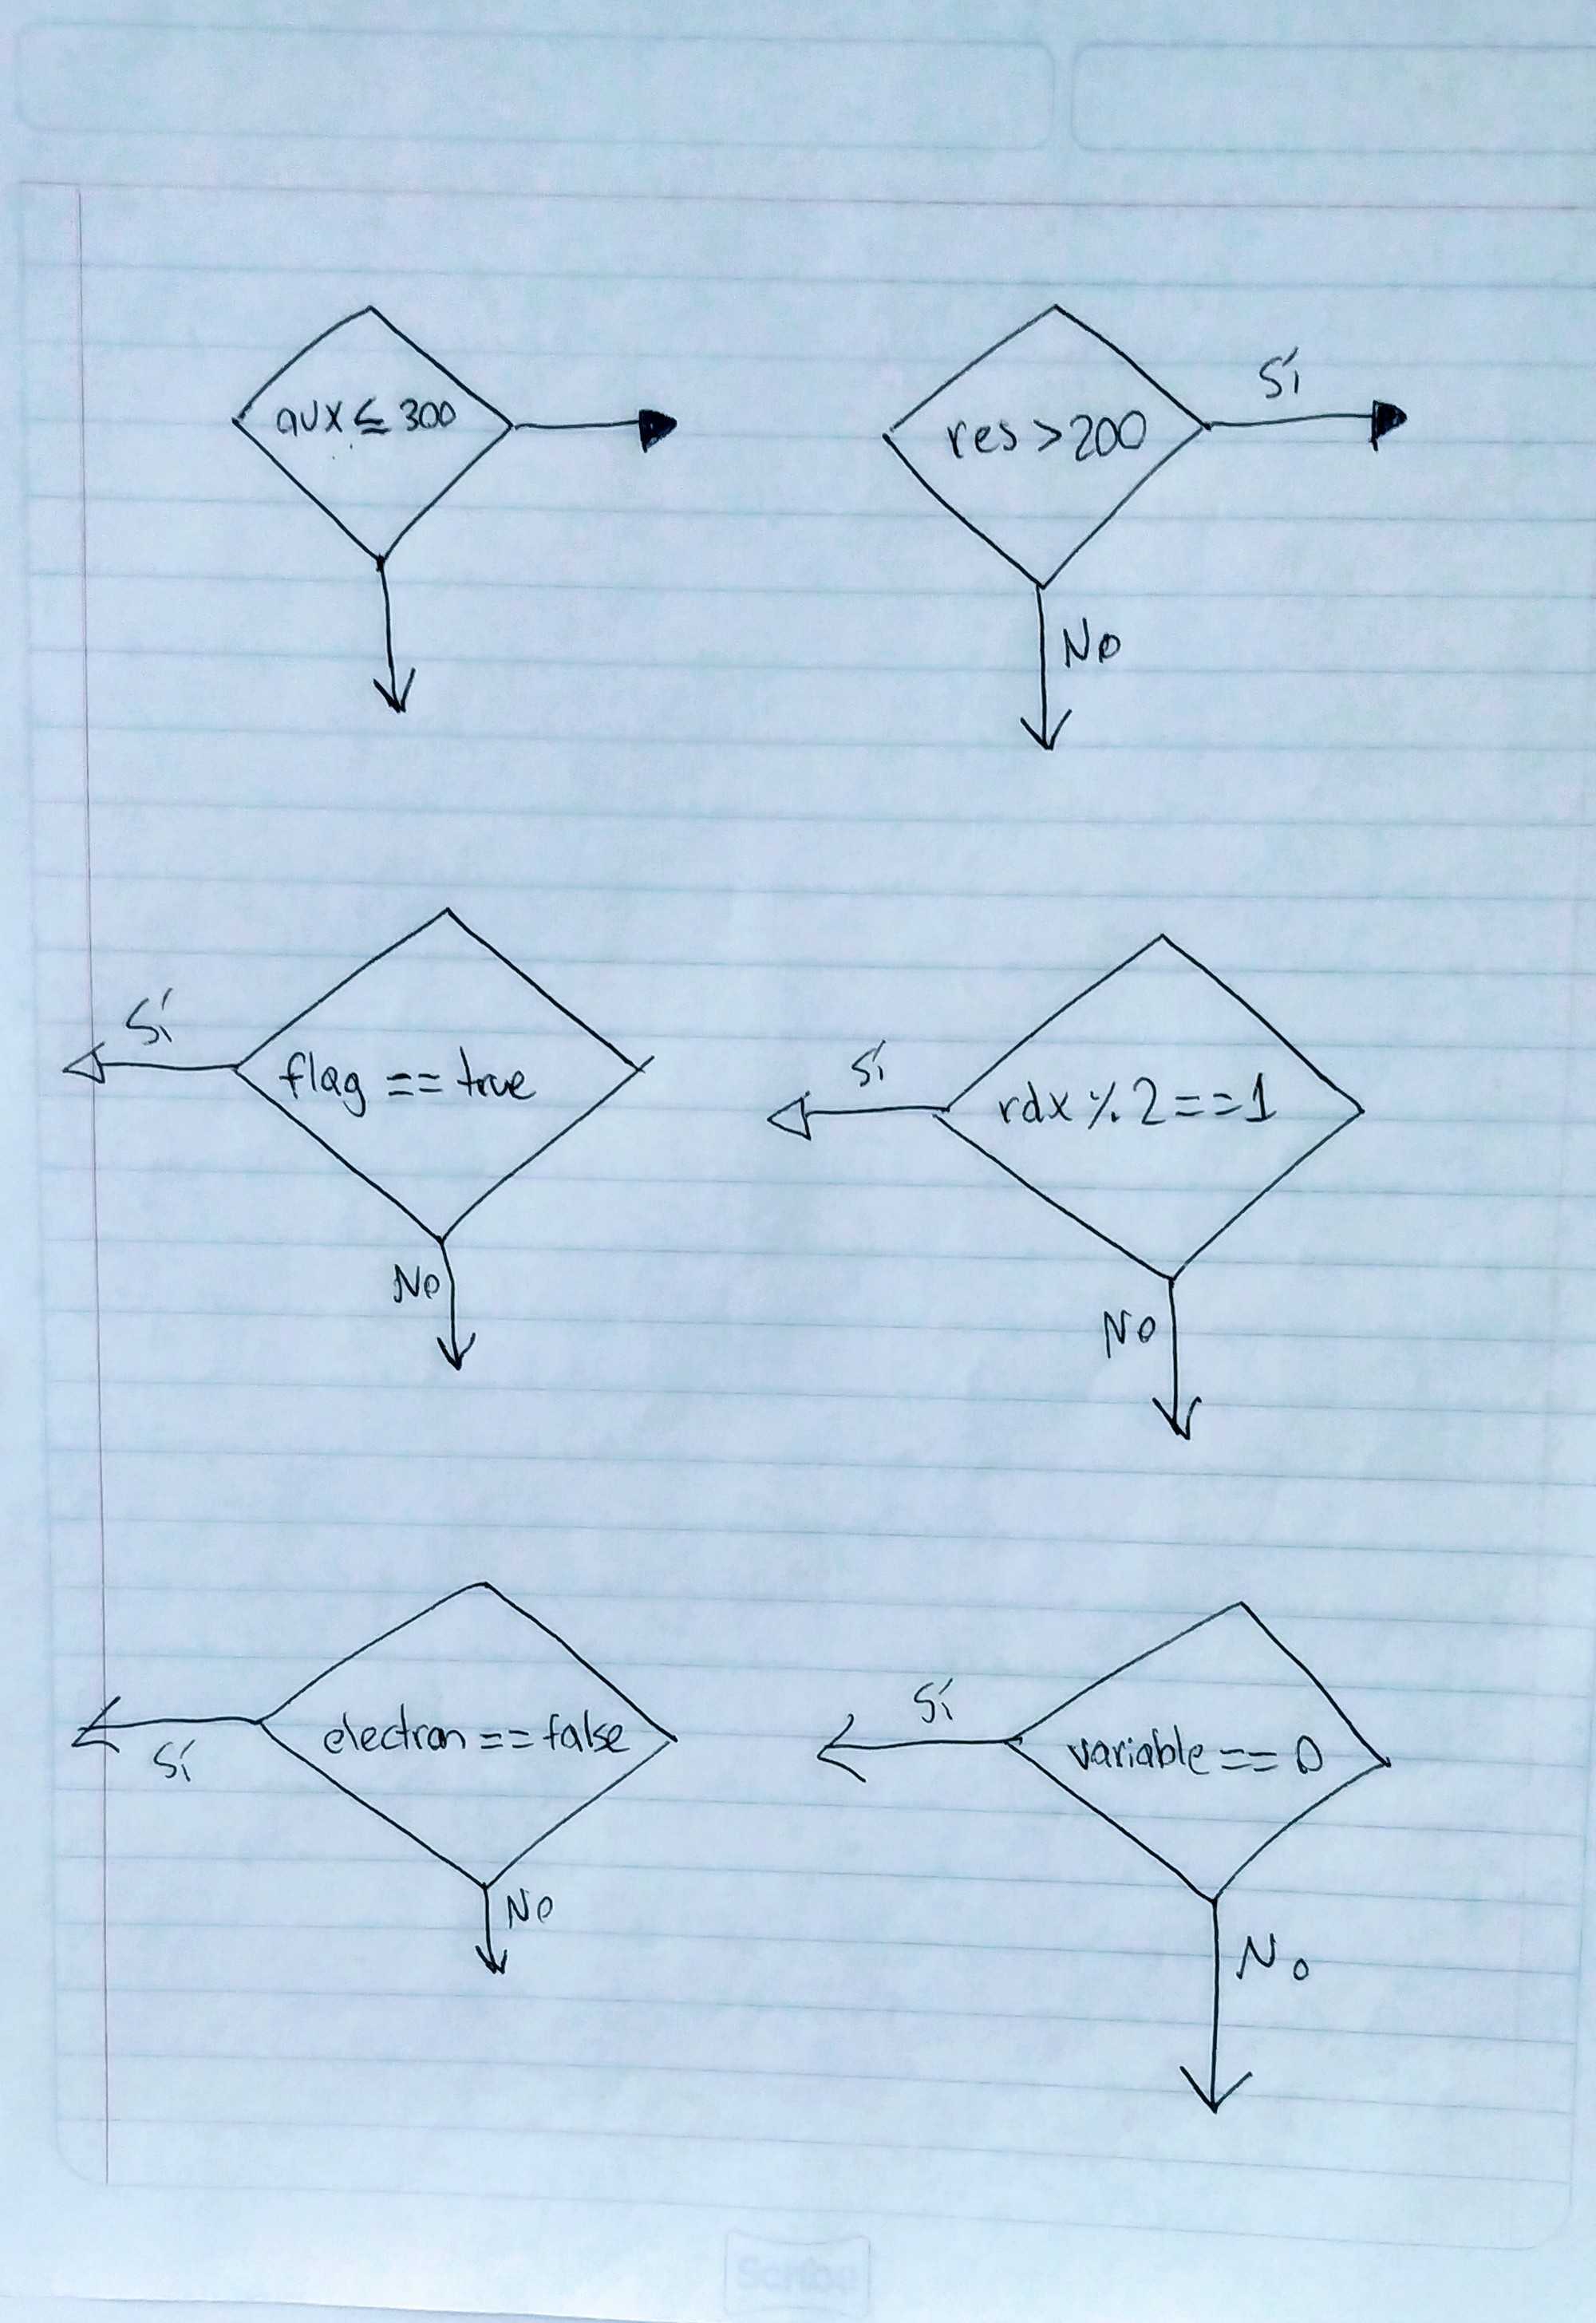 aux ≤ 300
Sí
res > 200
No
Sí
flag == true
No
Sí
rdx % 2 == 1
No
electron == false
Sí
No
Sí
variable == 0
No
Scribe